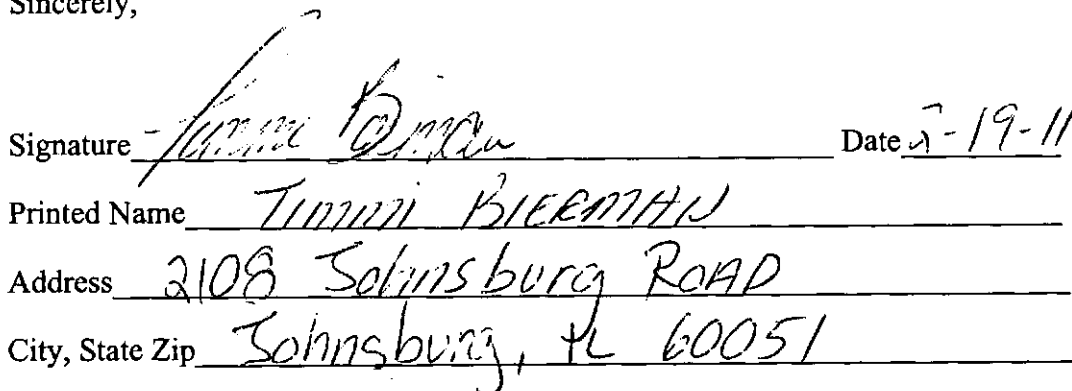 Sincerely,
Signature Timmi Bierman Date 5-19-11
Printed Name Timmi BIERMAN
Address 2108 Johnsburg ROAD
City, State Zip Johnsburg, IL 60051